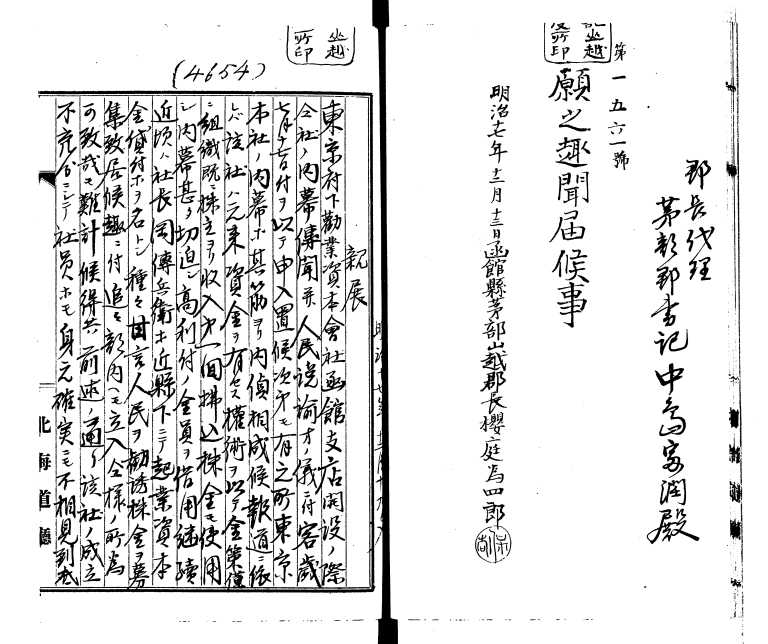 第一五六一號
願之趣聞届候事
明治十七年十二月十三日函館縣茅部山越郡長櫻庭為四郎
郡長代理
茅部郡書記中島富潤殿
(4654)
親展
東京府下勸業資本會社函館支店開設ノ際
仝社ノ内幕傳聞并人民説諭方ノ儀ニ付客歳
七月十七日付ヲ以テ申入置候次第モ有之所東京
本社ノ内幕ホ其筋ヨリ内偵相成候報道ニ依
レハ該社ハ元来資金ヲ有セス權術ヲ以テ金策
ニ組織既ニ株主ヨリ収入第一回拂込株金モ使用
シ内幕甚タ切迫シ高利付ノ金員ヲ借用継續
近頃ハ社長岡傳兵衛ホ近縣下ニテ起業資本
金貸付ホヲ名トシ種々甘言人民ヲ勧誘株金ヲ募
集致居候趣ニ付追々部内ヘモ立入仝様ノ所為
可致哉モ難計候得共前述ノ通リ該社ノ成立
不充分ニシテ社員ホモ身元確実ニモ不相見到底
北海道廳